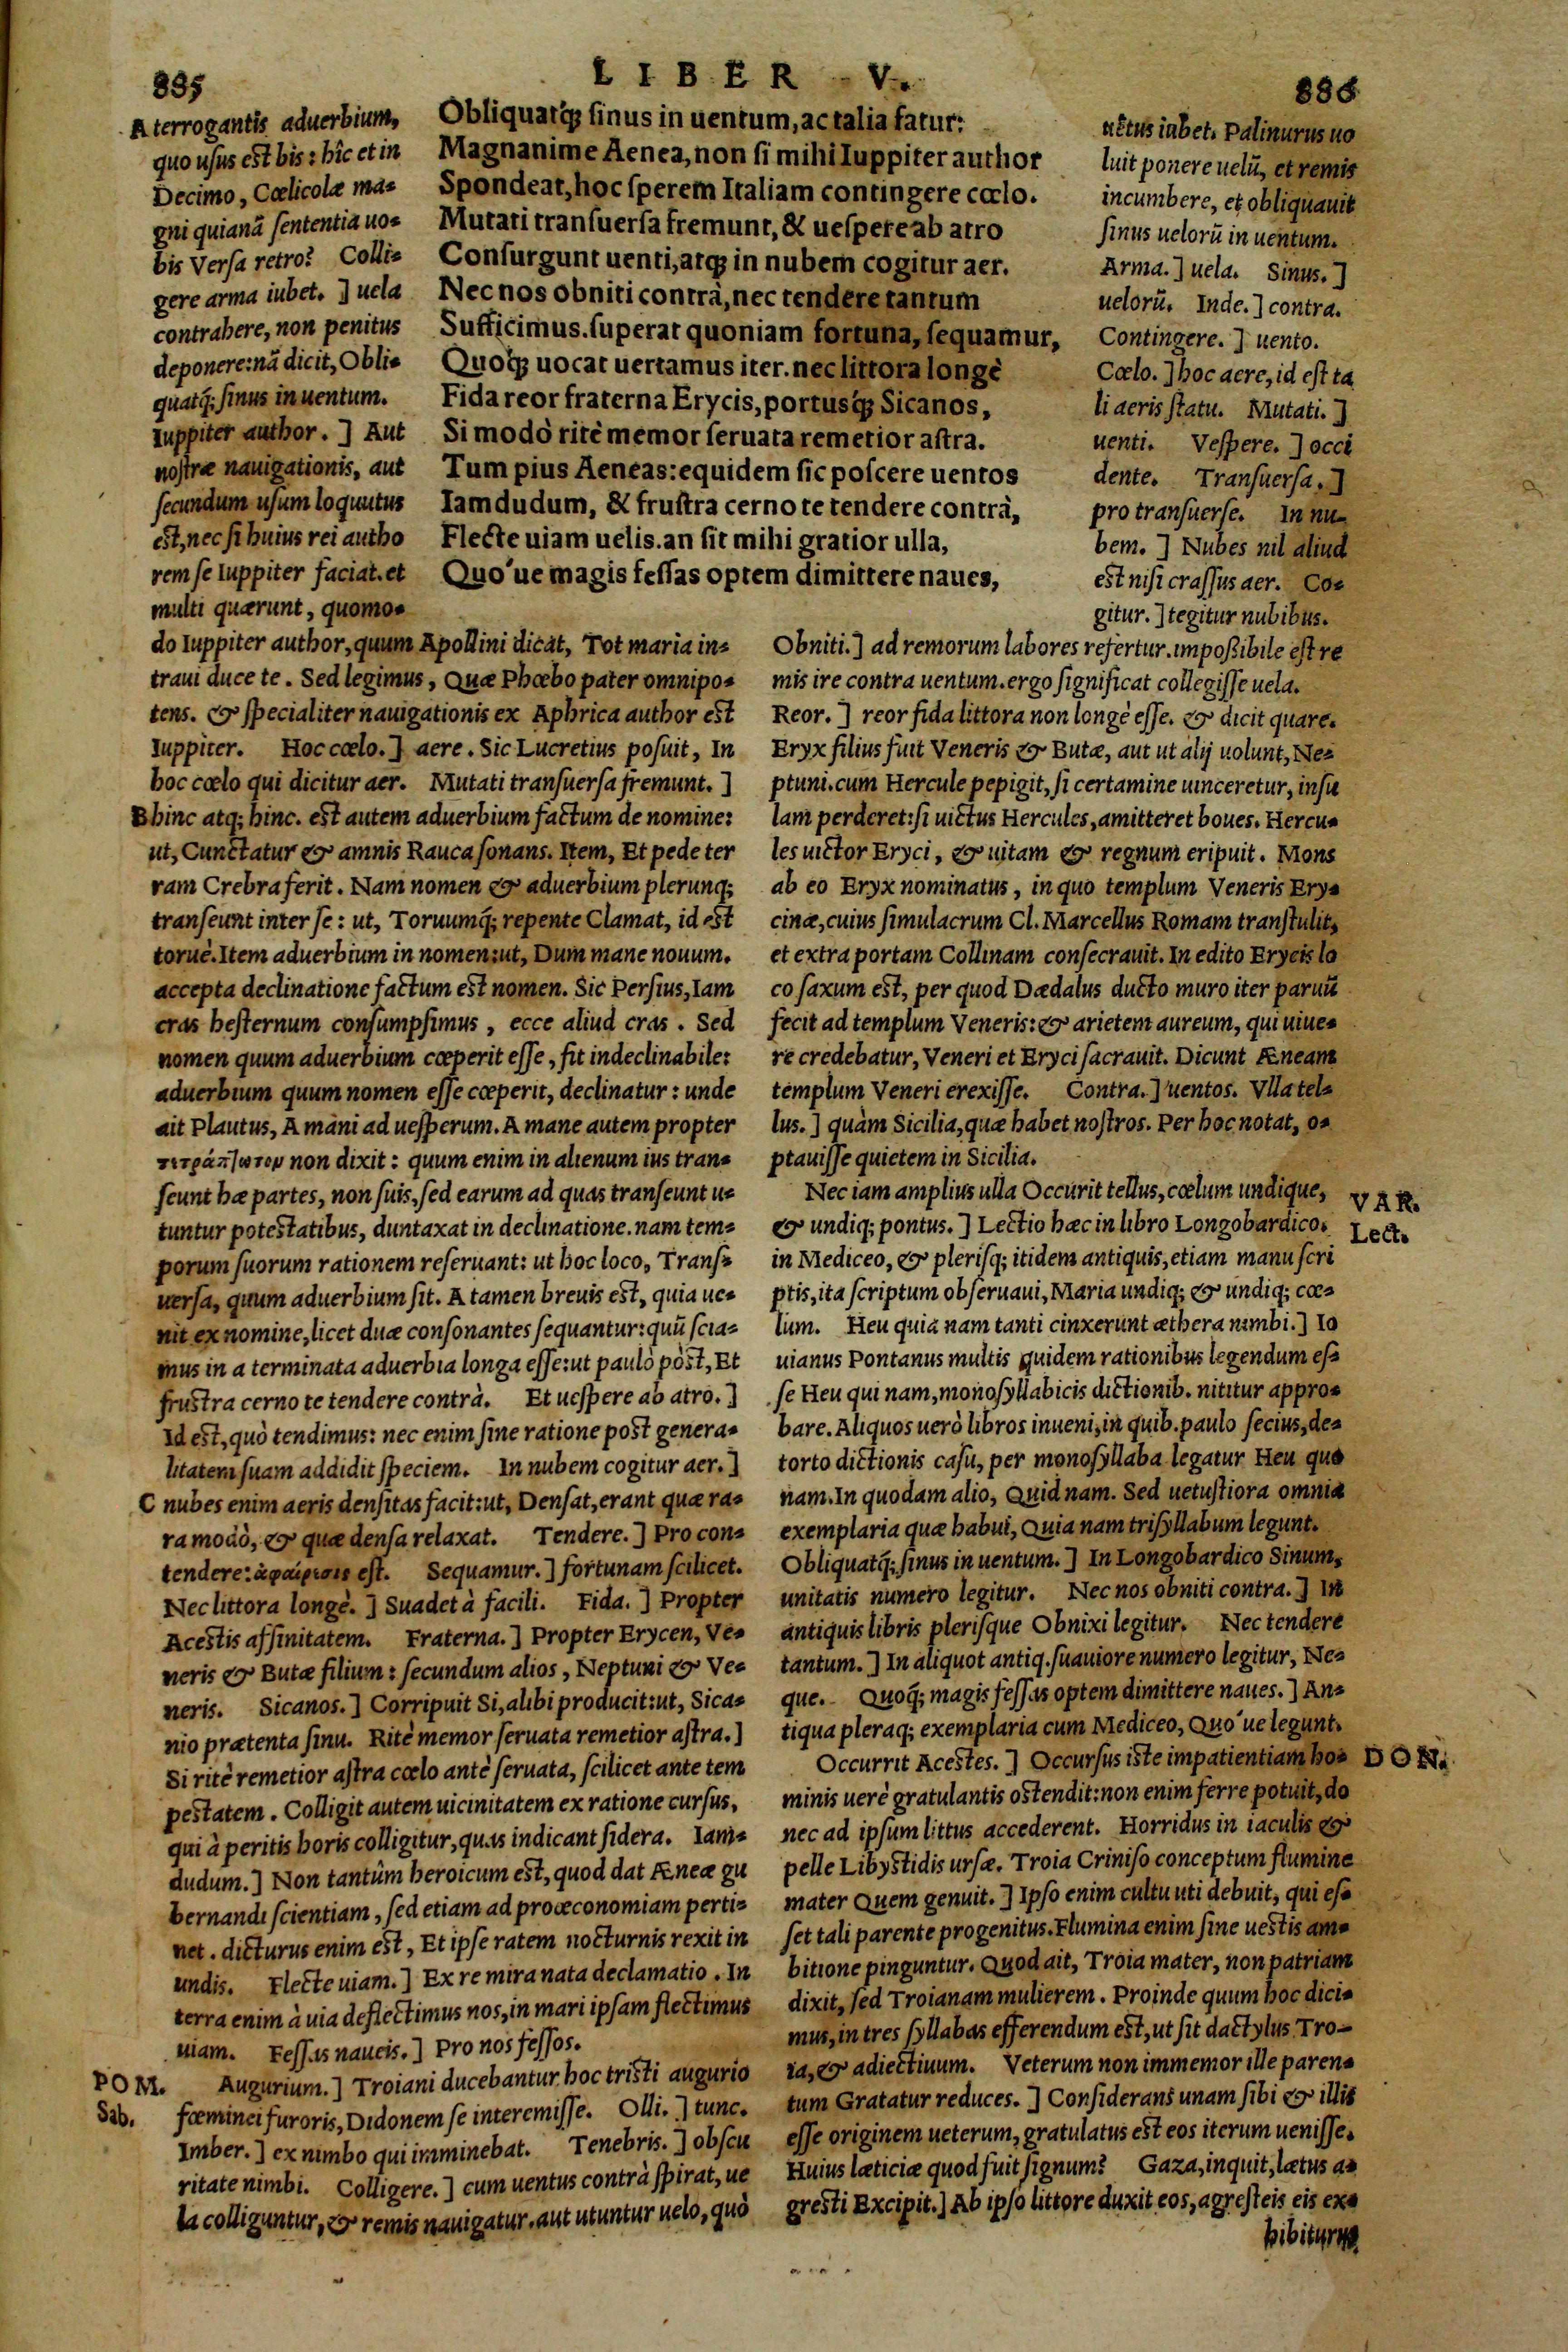 885
LIBER V.
886
Obliquatq́; sinus in uentum, ac talia fatur:
Magnanime Aenea, non si mihi Iuppiter author
Spondeat, hoc sperem Italiam contingere cœlo.
Mutati transuersa fremunt, & uespere ab atro
Consurgunt uenti, atq; in nubem cogitur aer.
Nec nos obniti contrà, nec tendere tantum
Sufficimus. superat quoniam fortuna, sequamur,
Quoq́; uocat uertamus iter. nec littora longè
Fida reor fraterna Erycis, portusq́; Sicanos,
Si modò ritè memor seruata remetior astra.
Tum pius Aeneas: equidem sic poscere uentos
Iamdudum, & frustra cerno te tendere contrà,
Flecte uiam uelis. an sit mihi gratior ulla,
Quo´ue magis fessas optem dimittere naues,
A terrogantis aduerbium,
quo usus est bis: hîc et in
Decimo, Cœlicolæ ma-
gni quianã sententia uo-
bis Versa retro? Colli-
gere arma iubet. ] uela
contrahere, non penitus
deponere: nã dicit, Obli-
quatq́; sinus in uentum.
Iuppiter author. ] Aut
nostræ nauigationis, aut
secundum usum loquutus
est, nec si huius rei autho
rem se Iuppiter faciat. et
multi quærunt, quomo-
do Iuppiter author, quum Apollini dicat, Tot maria in-
traui duce te. Sed legimus, Quæ Phœbo pater omnipo-
tens. & specialiter nauigationis ex Aphrica author est
Iuppiter. Hoc cœlo. ] aere. Sic Lucretius posuit, In
hoc cœlo qui dicitur aer. Mutati transuersa fremunt. ]
B hinc atq; hinc. est autem aduerbium factum de nomine:
ut, Cunctatur & amnis Rauca sonans. Item, Et pede ter
ram Crebra ferit. Nam nomen & aduerbium plerunq;
transeunt inter se: ut, Toruumq́; repente Clamat, id est
toruè. Item aduerbium in nomen: ut, Dum mane nouum.
accepta declinatione factum est nomen. Sic Persius, Iam
cras hesternum consumpsimus, ecce aliud cras. Sed
nomen quum aduerbium cœperit esse, fit indeclinabile:
aduerbium quum nomen esse cœperit, declinatur: unde
ait Plautus, A mani ad uesperum. A mane autem propter
τετράπτωτον non dixit: quum enim in alienum ius tran-
seunt hæ partes, non suis, sed earum ad quas transeunt u-
tuntur potestatibus, duntaxat in declinatione. nam tem-
porum suorum rationem reseruant: ut hoc loco, Trans-
uersa, quum aduerbium sit. A tamen breuis est, quia ue-
nit ex nomine, licet duæ consonantes sequantur: quũ scia-
mus in a terminata aduerbia longa esse: ut paulò pòst, Et
frustra cerno te tendere contrà. Et uespere ab atro. ]
Id est, quò tendimus: nec enim sine ratione post genera-
litatem suam addidit speciem. In nubem cogitur aer. ]
C nubes enim aeris densitas facit: ut, Densat, erant quæ ra-
ra modò, & quæ densa relaxat. Tendere. ] Pro con-
tendere: ἀφαίρεσις est. Sequamur. ] fortunam scilicet.
Nec littora longè. ] Suadet à facili. Fida. ] Propter
Acestis affinitatem. Fraterna. ] Propter Erycen, Ve-
neris & Butæ filium: secundum alios, Neptuni & Ve-
neris. Sicanos. ] Corripuit Si, alibi producit: ut, Sica-
nio prætenta sinu. Ritè memor seruata remetior astra. ]
Si ritè remetior astra cœlo antè seruata, scilicet ante tem
pestatem. Colligit autem uicinitatem ex ratione cursus,
qui à peritis horis colligitur, quas indicant sidera. Iam-
dudum. ] Non tantûm heroicum est, quod dat Æneæ gu
bernandi scientiam, sed etiam ad proœconomiam perti-
net. dicturus enim est, Et ipse ratem nocturnis rexit in
undis. Flecte uiam. ] Ex re mira nata declamatio. In
terra enim à uia deflectimus nos, in mari ipsam flectimus
uiam. Fessas naueis. ] Pro nos fessos.
POM.
Sab.
Augurium. ] Troiani ducebantur hoc tristi augurio
fœminei furoris, Didonem se interemisse. Olli. ] tunc.
Imber. ] ex nimbo qui imminebat. Tenebris. ] obscu
ritate nimbi. Colligere. ] cum uentus contrà spirat, ue
la colliguntur, & remis nauigatur. aut utuntur uelo, quò
uẽtus iubet. Palinurus uo
luit ponere uelũ, et remis
incumbere, et obliquauit
sinus uelorũ in uentum.
Arma. ] uela. Sinus. ]
uelorũ. Inde. ] contra.
Contingere. ] uento.
Cœlo. ] hoc aere, id est ta
li aeris statu. Mutati. ]
uenti. Vespere. ] occi
dente. Transuersa. ]
pro transuerse. In nu-
bem. ] Nubes nil aliud
est nisi crassus aer. Co-
gitur. ] tegitur nubibus.
Obniti. ] ad remorum labores refertur. impoßibile est re
mis ire contra uentum. ergo significat collegisse uela.
Reor. ] reor fida littora non longè esse. & dicit quare.
Eryx filius fuit Veneris & Butæ, aut ut alij uolunt, Ne-
ptuni. cum Hercule pepigit, si certamine uinceretur, insu
lam perderet: si uictus Hercules, amitteret boues. Hercu-
les uictor Eryci, & uitam & regnum eripuit. Mons
ab eo Eryx nominatus, in quo templum Veneris Ery-
cinæ, cuius simulacrum Cl. Marcellus Romam transtulit,
et extra portam Collinam consecrauit. In edito Erycis lo
co saxum est, per quod Dædalus ducto muro iter paruũ
fecit ad templum Veneris: & arietem aureum, qui uiue-
re credebatur, Veneri et Eryci sacrauit. Dicunt Æneam
templum Veneri erexisse. Contra. ] uentos. Vlla tel-
lus. ] quàm Sicilia, quæ habet nostros. Per hoc notat, o-
ptauisse quietem in Sicilia.
Nec iam amplius ulla Occurit tellus, cœlum undique,
& undiq; pontus. ] Lectio hæc in libro Longobardico.
VAR.
Lect.
in Mediceo, & plerisq; itidem antiquis, etiam manu scri
ptis, ita scriptum obseruaui, Maria undiq; & undiq; cœ-
lum. Heu quia nam tanti cinxerunt æthera nimbi. ] Io
uianus Pontanus multis quidem rationibus legendum es-
se Heu qui nam, monosyllabicis dictionib. nititur appro-
bare. Aliquos uerò libros inueni, in quib. paulo secius, de-
torto dictionis casu, per monosyllaba legatur Heu quo
nam. In quodam alio, Quid nam. Sed uetustiora omnia
exemplaria quæ habui, Quia nam trisyllabum legunt.
Obliquatq́; sinus in uentum. ] In Longobardico Sinum,
unitatis numero legitur. Nec nos obniti contra. ] In
antiquis libris plerisque Obnixi legitur. Nec tendere
tantum. ] In aliquot antiq. suauiore numero legitur, Ne-
que. Quoq́; magis fessas optem dimittere naues. ] An-
tiqua pleraq; exemplaria cum Mediceo, Quo´ue legunt.
Occurrit Acestes. ] Occursus iste impatientiam ho-
DON.
minis uerè gratulantis ostendit: non enim ferre potuit, do
nec ad ipsum littus accederent. Horridus in iaculis &
pelle Libystidis ursæ. Troia Criniso conceptum flumine
mater Quem genuit. ] Ipso enim cultu uti debuit, qui es-
set tali parente progenitus. Flumina enim sine uestis am-
bitione pinguntur. Quod ait, Troia mater, non patriam
dixit, sed Troianam mulierem. Proinde quum hoc dici-
mus, in tres syllabas efferendum est, ut sit dactylus Tro-
ia, & adiectiuum. Veterum non immemor ille paren-
tum Gratatur reduces. ] Considerans unam sibi & illis
esse originem ueterum, gratulatus est eos iterum uenisse.
Huius læticiæ quod fuit signum? Gaza, inquit, lætus a-
gresti Excipit. ] Ab ipso littore duxit eos, agresteis eis ex-
hibiturus